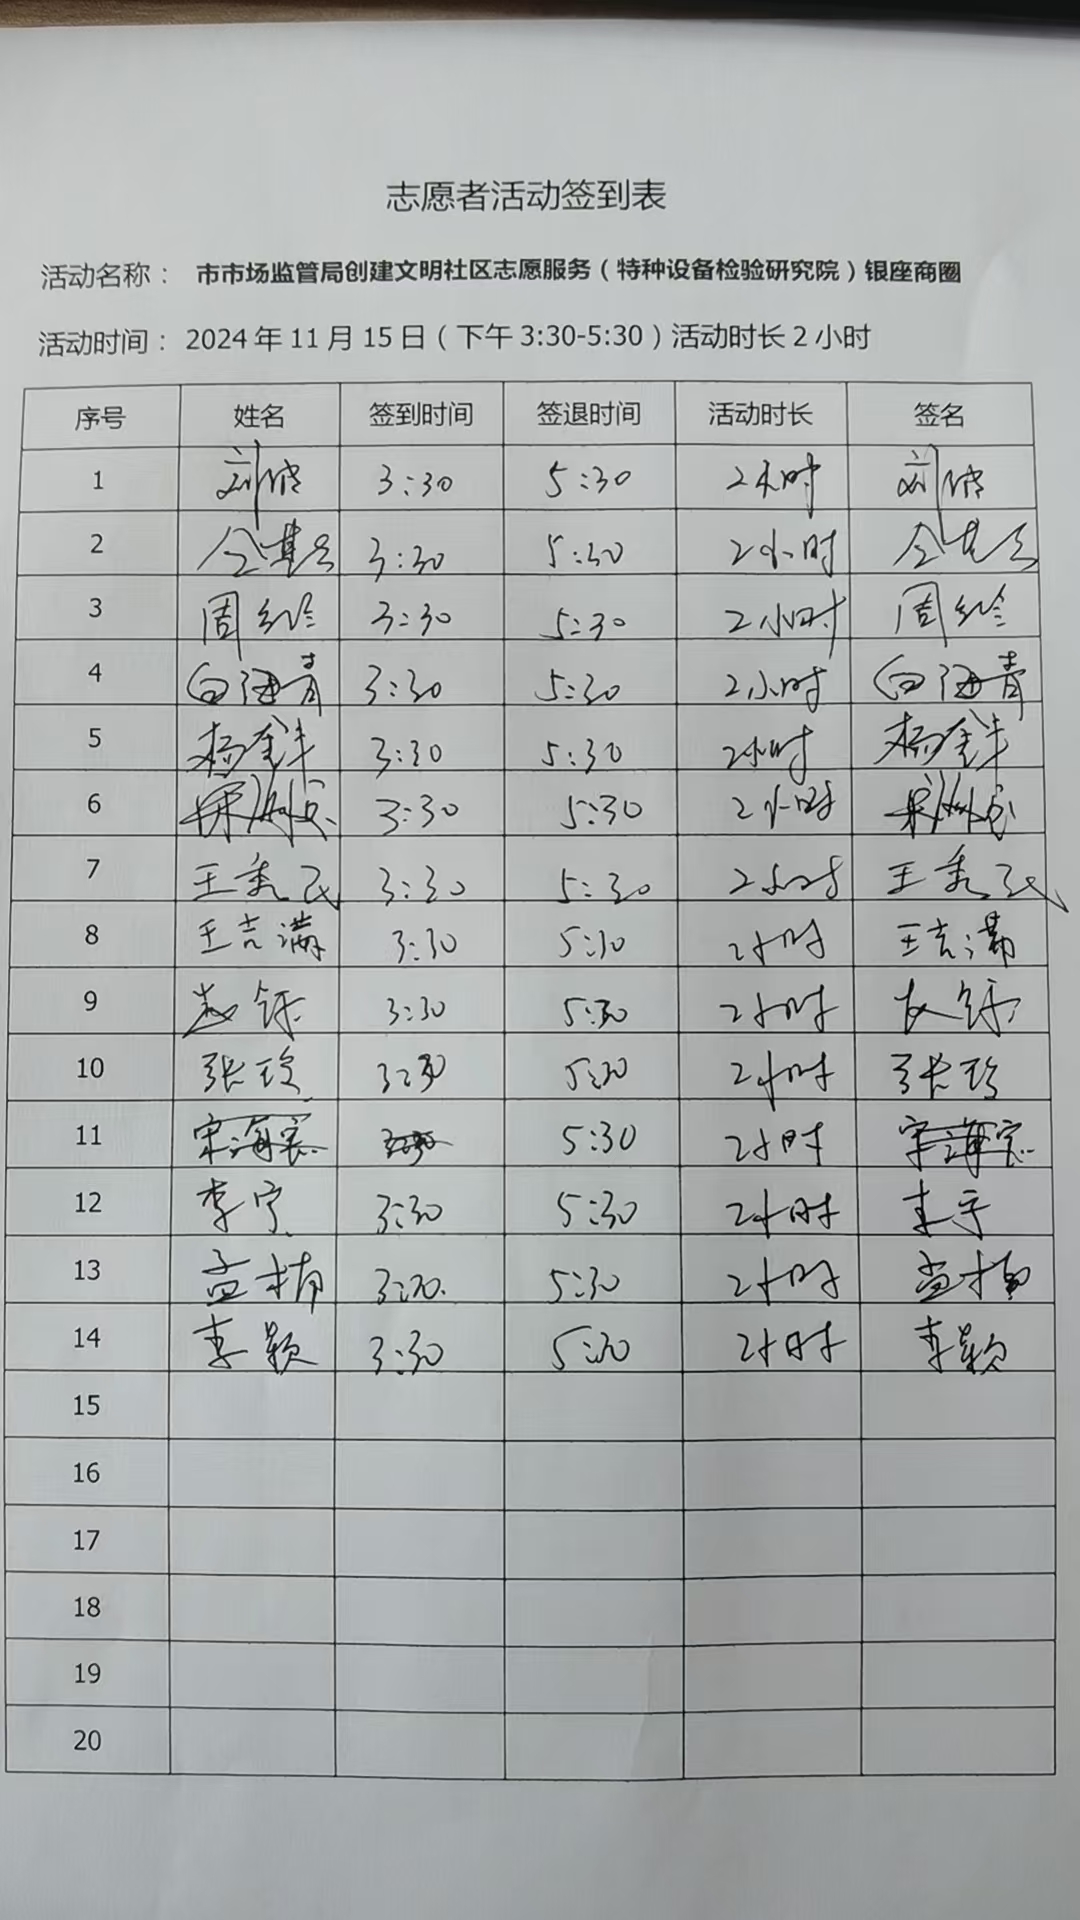 志愿者活动签到表
活动名称： 市市场监管局创建文明社区志愿服务（特种设备检验研究院）银座商圈
活动时间： 2024年11月15日（下午3:30-5:30）活动时长2小时
序号 姓名 签到时间 签退时间 活动时长 签名
1 刘 3:30 5:30 2小时 刘
2 3:30 5:30 2小时
3 周 3:30 5:30 2小时 周
4 白海青 3:30 5:30 2小时 白海青
5 杨 3:30 5:30 2小时 杨
6 3:30 5:30 2小时
7 王秀民 3:30 5:30 2小时 王秀民
8 王吉满 3:30 5:30 2小时 王吉满
9 3:30 5:30 2小时
10 张 3:30 5:30 2小时 张
11 宋海 5:30 2小时 宋海
12 李宁 3:30 5:30 2小时 李宁
13 孟楠 3:30 5:30 2小时 孟楠
14 李颖 3:30 5:30 2小时 李颖
15
16
17
18
19
20